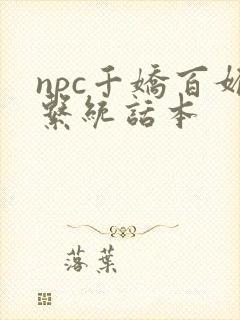 npc千嬌百媚
繫統話本
落葉